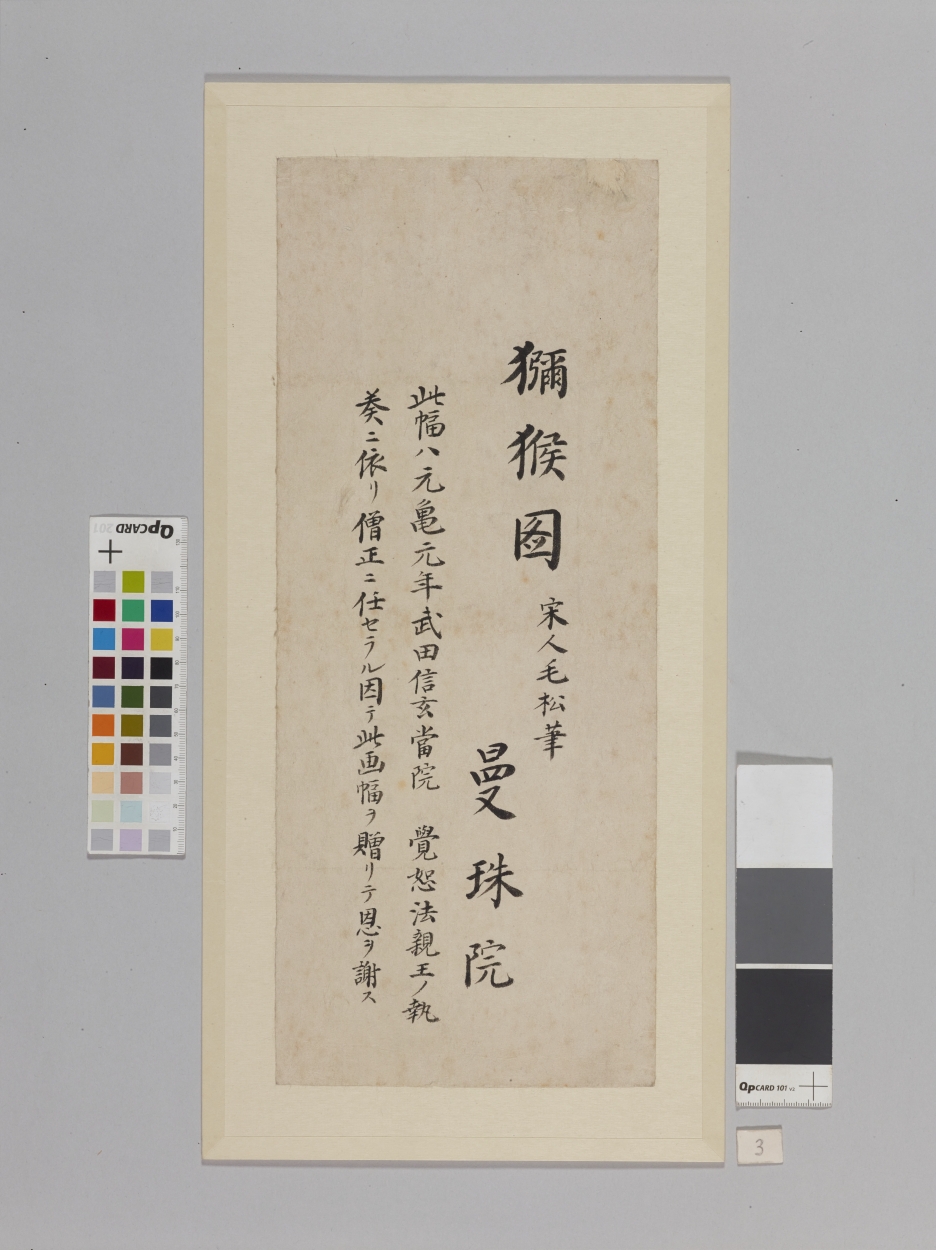 獼猴图 宋人毛松筆
曼珠院
此幅ハ元亀元年武田信玄當院 覺恕法親王ノ執
奏ニ依リ僧正ニ任セラル因テ此画幅ヲ贈リテ恩ヲ謝ス
QPCARD 201
QPCARD 101 v3
3